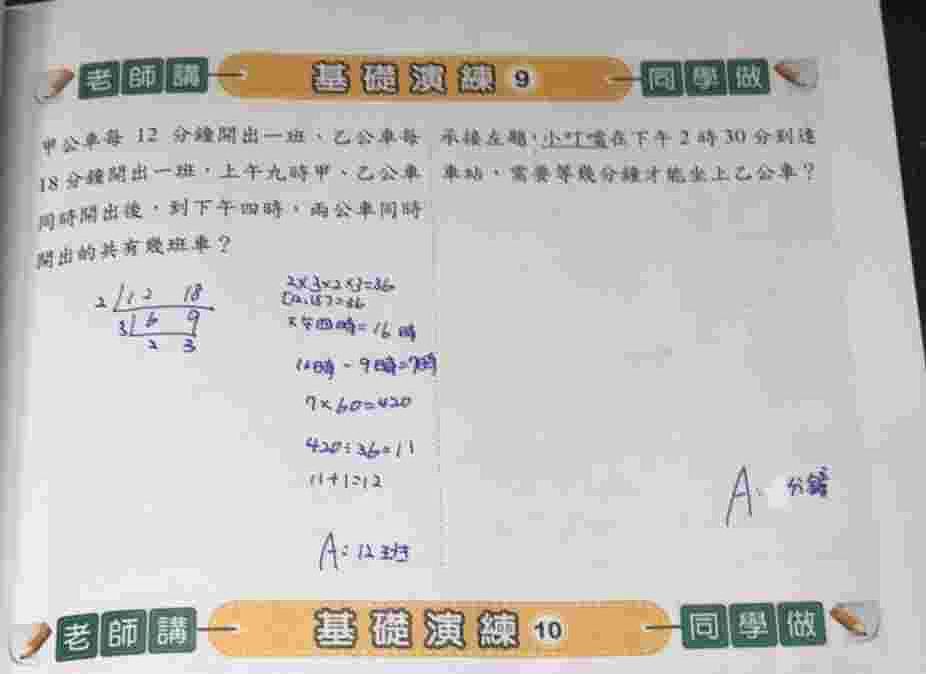 老師講
基礎演練 9
同學做
甲公車每 12 分鐘開出一班、乙公車每
18 分鐘開出一班,上午九時甲、乙公車
同時開出後,到下午四時,兩公車同時
開出的共有幾班車?
2 12 18
3 6 9
2 3
2×3×2×3=36
[12,18]=36
下午四時=16時
16時-9時=7時
7×60=420
420÷36=11
11+1=12
A:12班
承接左題,小叮噹在下午 2 時 30 分到達
車站,需要等幾分鐘才能坐上乙公車?
A: 分鐘
老師講
基礎演練 10
同學做